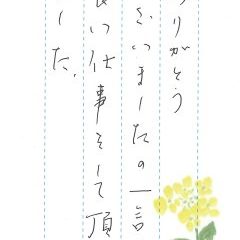 りがとう
ざいましたの一言
良い仕事をして頂
した。